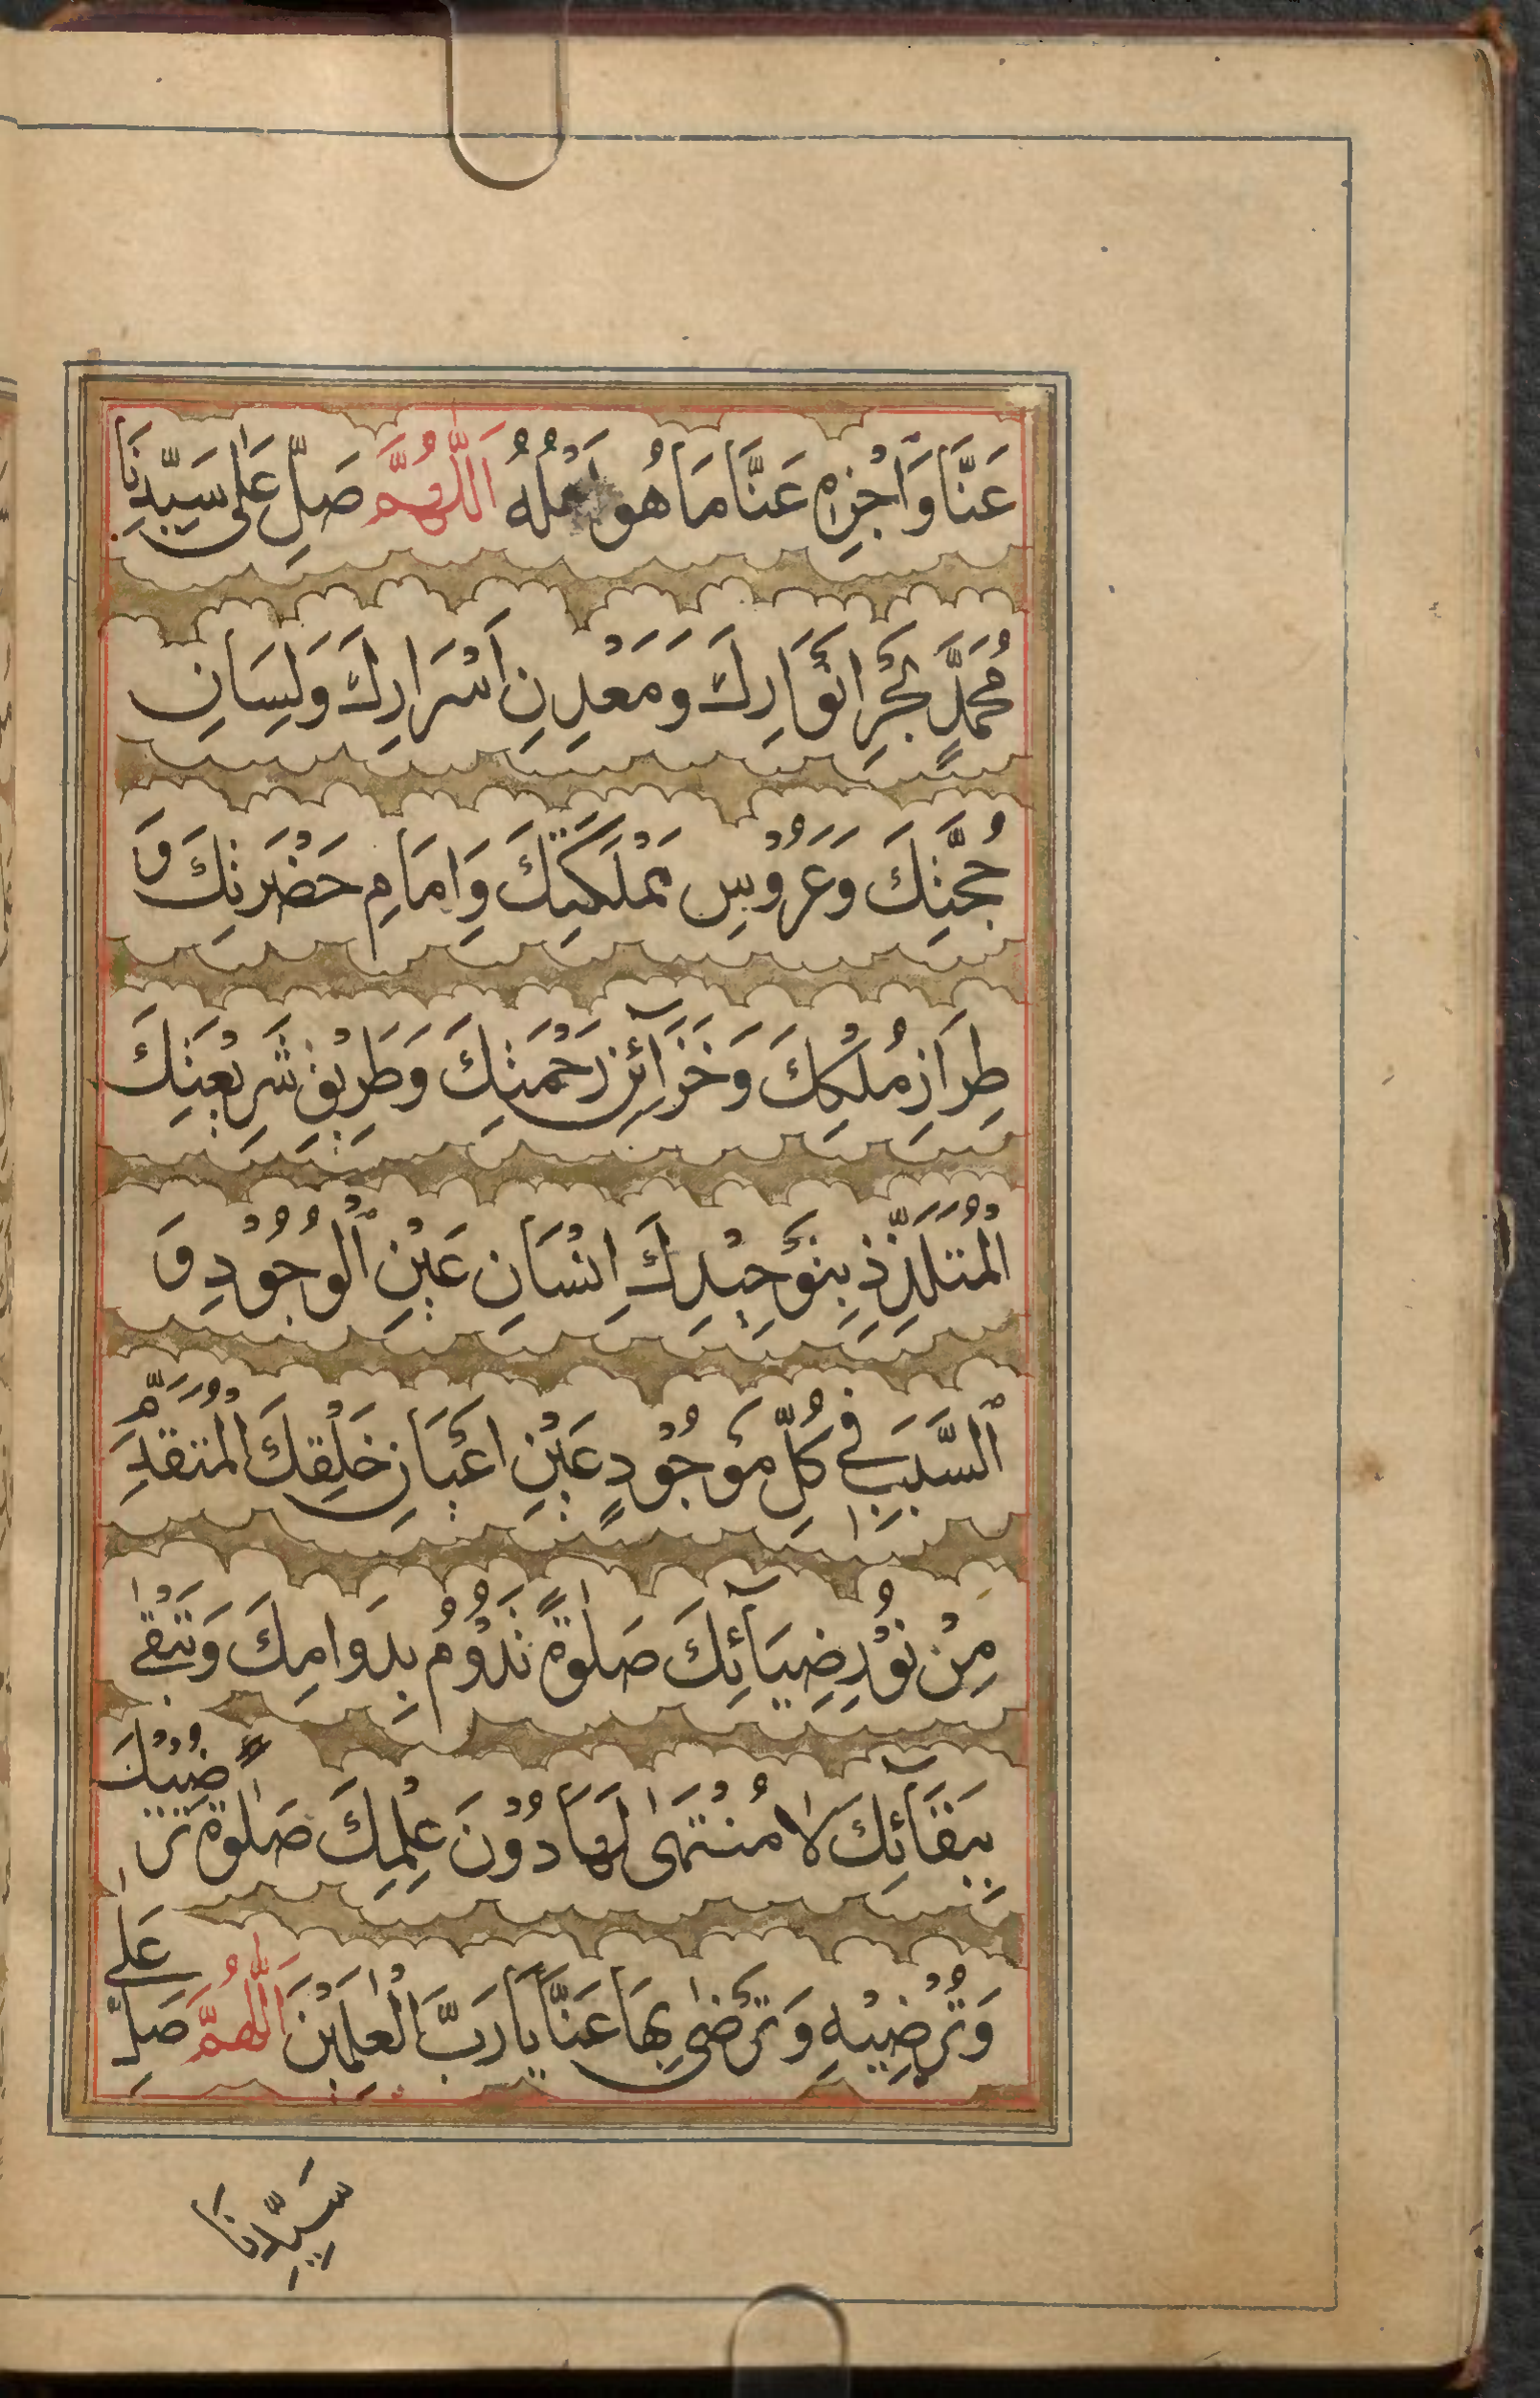 عَنَّا وَاَجْزِهِ عَنَّا مَا هُوَ اَهْلُهُ اَللّٰهُمَّ صَلِّ عَلٰى سَيِّدِنَا
مُحَمَّدٍ بَحْرِ اَنْوَارِكَ وَمَعْدِنِ اَسْرَارِكَ وَلِسَانِ
حُجَّتِكَ وَعَرُوْسِ مَمْلَكَتِكَ وَاِمَامِ حَضْرَتِكَ وَ
طِرَازِ مُلْكِكَ وَخَزَآئِنِ رَحْمَتِكَ وَطَرِيْقِ شَرِيْعَتِكَ
الْمُتَلَذِّذِ بِتَوْحِيْدِكَ اِنْسَانِ عَيْنِ الْوُجُوْدِ وَ
السَّبَبِ فِيْ كُلِّ مَوْجُوْدٍ عَيْنِ اَعْيَانِ خَلْقِكَ الْمُتَقَدِّمِ
مِنْ نُوْرِ ضِيَآئِكَ صَلٰوةً تَدُوْمُ بِدَوَامِكَ وَتَبْقٰى
بِبَقَآئِكَ لَا مُنْتَهٰى لَهَا دُوْنَ عِلْمِكَ صَلٰوةً تُرْضِيْكَ
وَتُرْضِيْهِ وَتَرْضٰى بِهَا عَنَّا يَا رَبَّ الْعٰلَمِيْنَ اَللّٰهُمَّ صَلِّ عَلٰى
سَيِّدِنَا